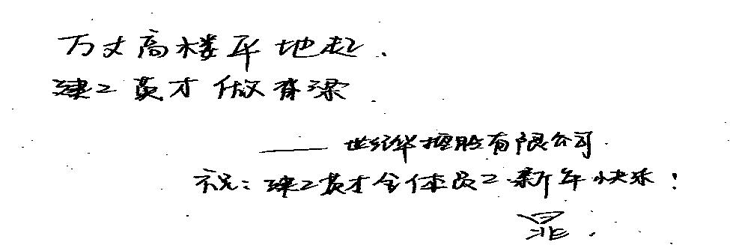 万丈高楼平地起.
建工英才做脊梁.
—— 世纪华控股有限公司.
祝:建工英才全体员工新年快乐!